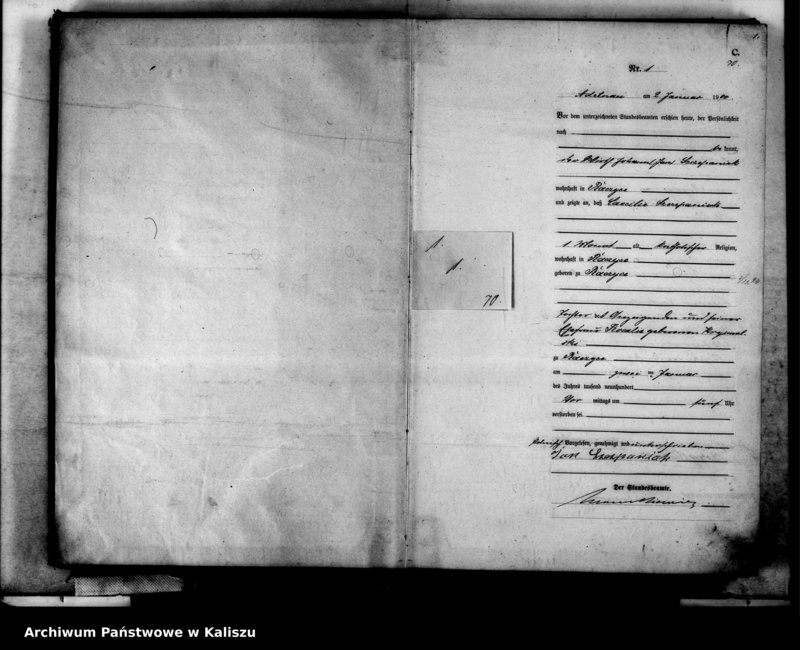 1.
1.
70.
1.
C.
70.
Nr. 1
Adelnau am 2 Januar 1900
Vor dem unterzeichneten Standesbeamten erschien heute, der Persönlichkeit
nach
be kannt,
der Johann Jan Szczepaniak
wohnhaft in
und zeigte an, daß Caecilie Szczepaniak
1 Monat alt, katholischer Religion,
wohnhaft in
geboren zu
Tochter des Anzeigenden und seiner
Ehefrau Rosalie geborenen
ski
zu
am zwei ten Januar
des Jahres tausend neunhundert
Vor mittags um fünf Uhr
verstorben sei.
Vorgelesen, genehmigt und unterschrieben
Jan Szczepaniak
Der Standesbeamte.
Archiwum Państwowe w Kaliszu